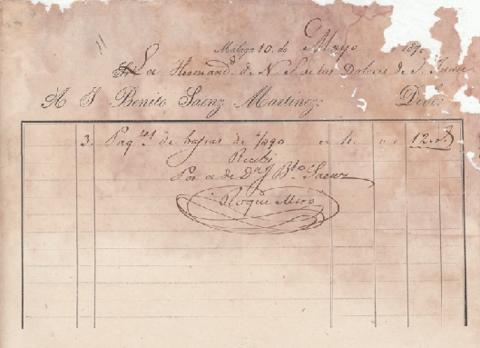 Málaga 10. de Mayo 189
La Hermand. de N. S. de los Dolores de S. Juan
A J Benito Saenz Martinez: Debe:
3. Paq.tes de bujias de a 4. 12. r.s
Recibi
Por o. de Dn J Bto Saenz
Roque Miro